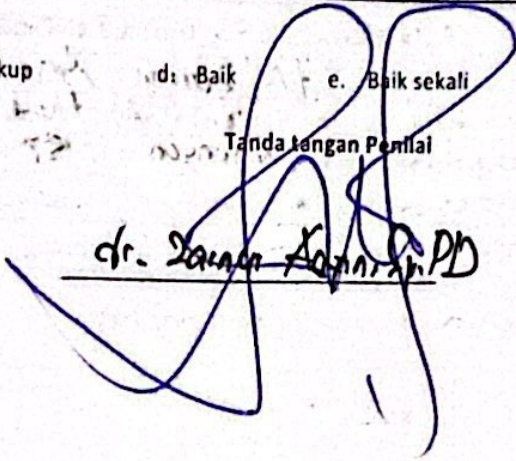 kup d. Baik e. Baik sekali
Tanda tangan Penilai
dr. Sp.PD